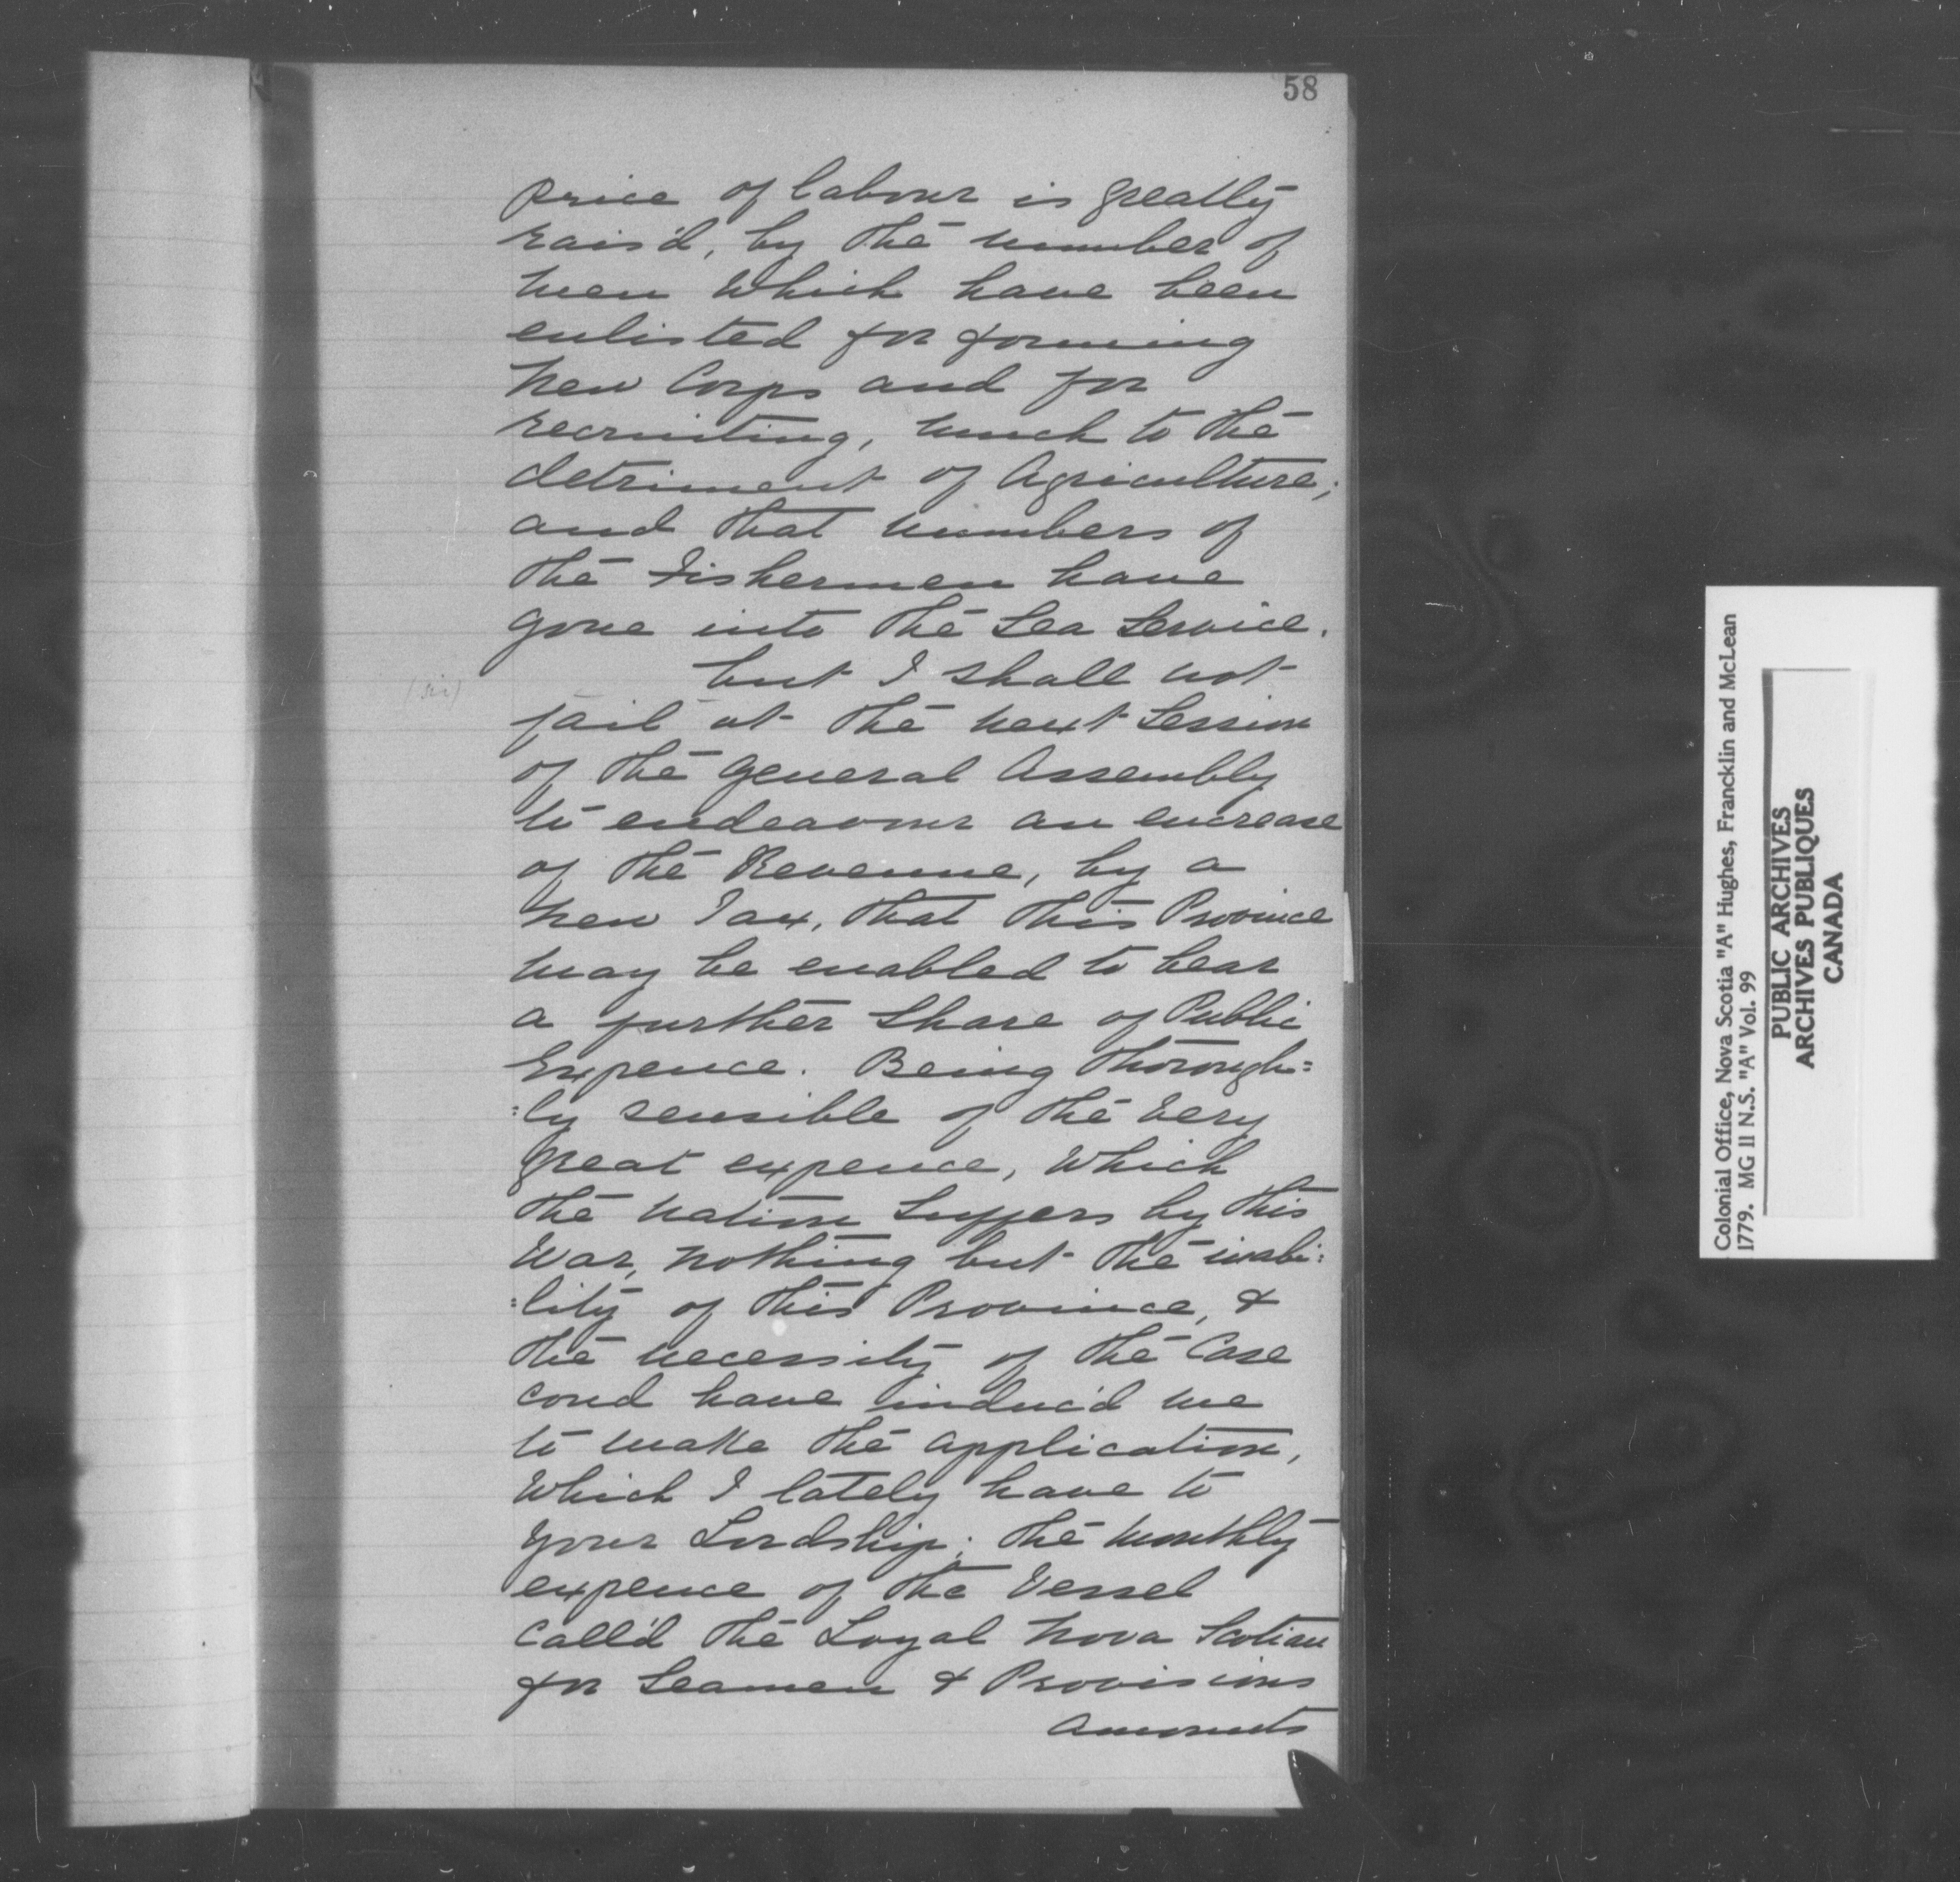 58
price of labour is greatly
rais'd, by the number of
men which have been
enlisted for forming
new Corps and for
recruiting, much to the
detriment of Agriculture;
and that numbers of
the Fishermen have
gone into the Sea Service.
but I shall not
(sic)
fail at the next Session
of the General Assembly
to endeavour an encrease
of the Revenue, by a
new Tax, that this Province
may be enabled to bear
a further Share of Public
Expence. Being thorough=
=ly sensible of the very
great expence, which
the Nation Suffers by this
War, nothing but the inabi=
=lity of this Province, &
the necessity of the Case
coud have induc'd me
to make the application,
which I lately have to
your Lordship; the monthly
expence of the Vessel
call'd the Loyal Nova Scotian
for Seamen & Provisions
amounts
Colonial Office, Nova Scotia "A" Hughes, Francklin and McLean
1779. MG II N.S. "A" Vol. 99
PUBLIC ARCHIVES
ARCHIVES PUBLIQUES
CANADA